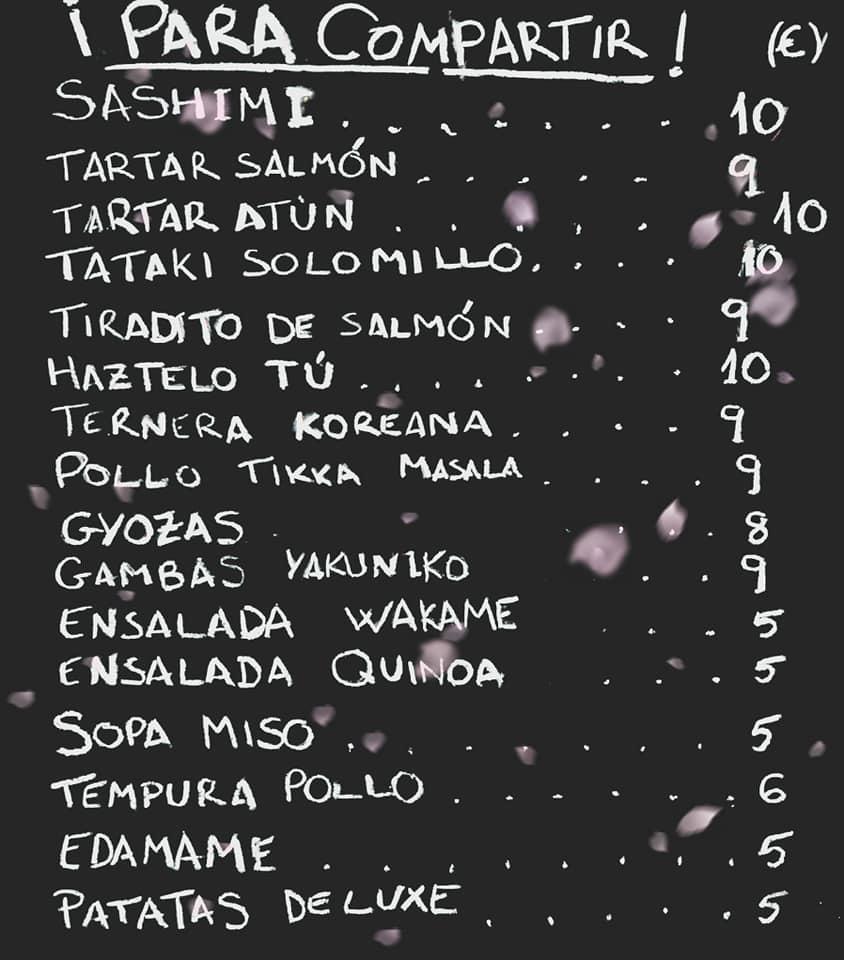 ¡PARA COMPARTIR! (€)
SASHIMI . . . . . . . 10
TARTAR SALMÓN . . . . . 9
TARTAR ATÚN . . . . . 10
TATAKI SOLOMILLO. . . . 10
TIRADITO DE SALMÓN . . . . 9
HAZTELO TÚ . . . . . . . . 10
TERNERA KOREANA . . . . 9
POLLO TIKKA MASALA . . . . 9
GYOZAS . . . 8
GAMBAS YAKUNIKO . . 9
ENSALADA WAKAME . . . 5
ENSALADA QUINOA . . . 5
SOPA MISO . . . . . . . 5
TEMPURA POLLO . . . . . . 6
EDAMAME . . . . . . . . 5
PATATAS DELUXE . . . . . 5